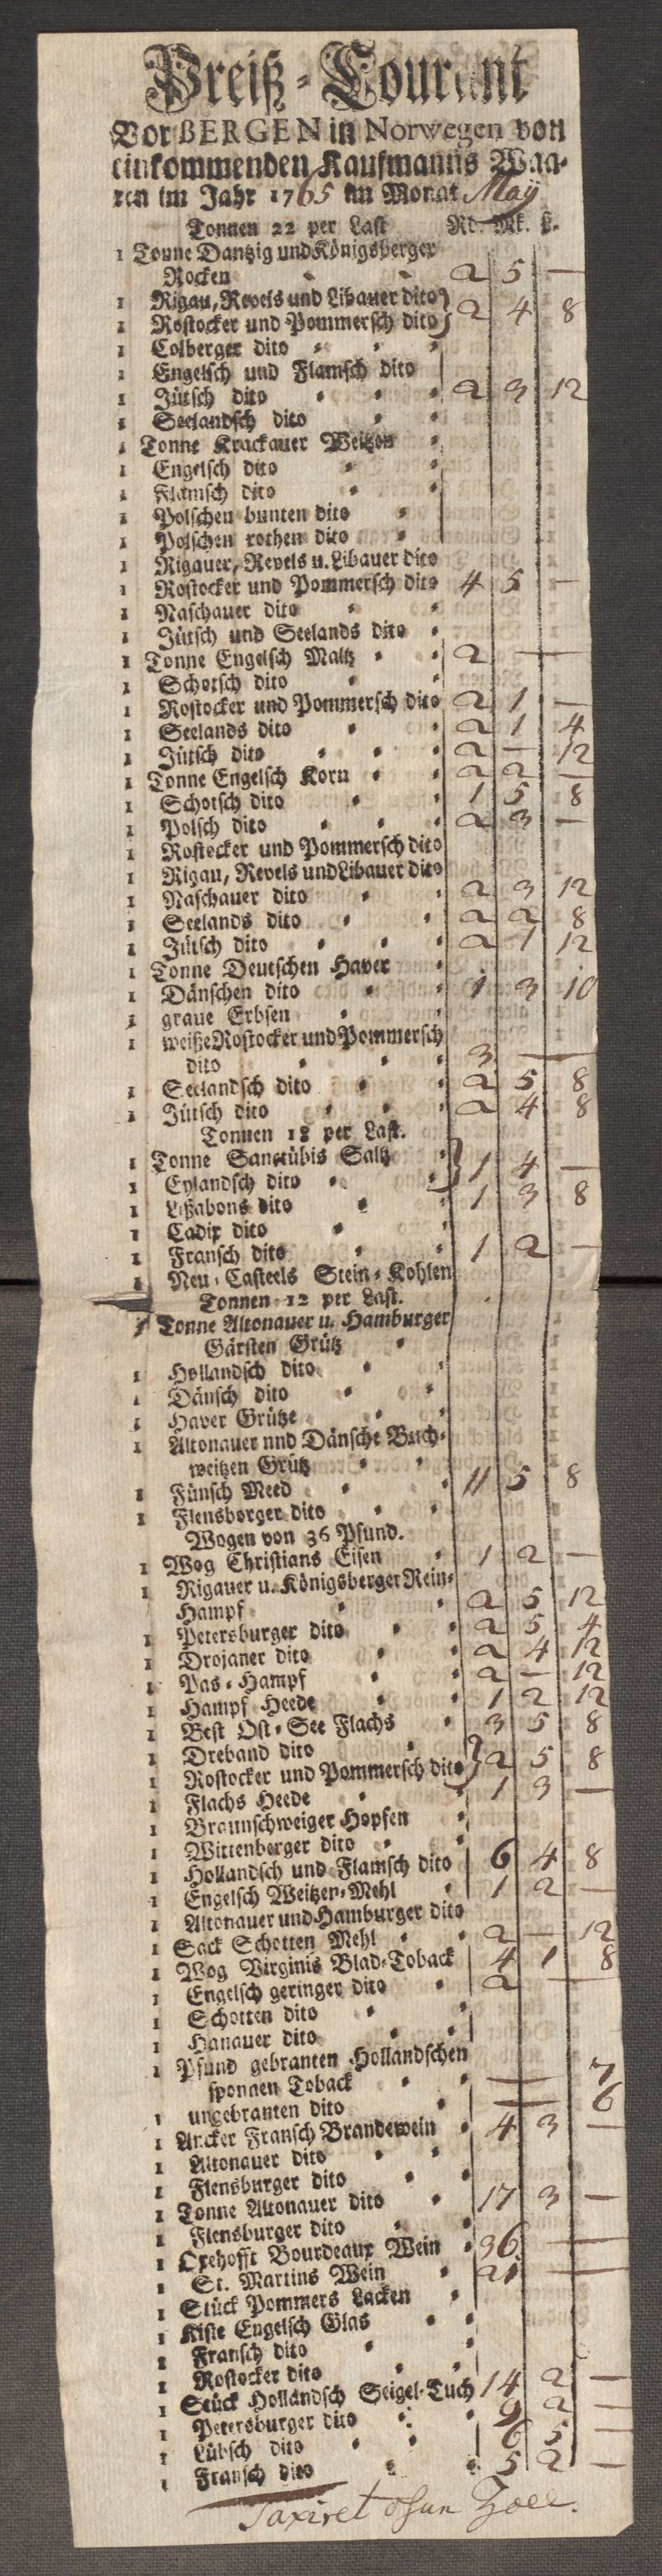 Preiß-Courant
Vor BERGEN in Norwegen von
einkommenden Kaufmanns Waa-
ren im Jahr 1765 im Monat May
Tonnen 22 per Last Rd. Mk. ß.
1 Tonne Dantzig und Königsberger
Rocken 2 5 —
1 Rigau, Revels und Libauer dito
1 Rostocker und Pommersch dito } 2 4 8
1 Colberger dito
1 Engelsch und Flamsch dito
1 Jütsch dito 2 3 12
1 Seelandsch dito
1 Tonne Krackauer Weitzen
1 Engelsch dito
1 Flämsch dito
1 Polschen bunten dito
1 Polschen rothen dito
1 Rigauer, Revels u. Libauer dito
1 Rostocker und Pommersch dito 4 5 —
1 Naschauer dito
1 Jütsch und Seelands dito
1 Tonne Engelsch Maltz 2 —
1 Schotsch dito
1 Rostocker und Pommersch dito 2 1 —
1 Seelands dito 2 1 4
1 Jütsch dito 2 — 12
1 Tonne Engelsch Korn 2 2 —
1 Schotsch dito 1 5 8
1 Polsch dito 2 3 —
1 Rostecker und Pommersch dito
1 Rigau, Revels und Libauer dito
1 Naschauer dito 2 3 12
1 Seelands dito 2 2 8
1 Jütsch dito 2 1 12
1 Tonne Deutschen Haver
1 Dänschen dito 1 3 10
1 graue Erbsen
1 weiße Rostocker und Pommersch
dito 3 —
1 Seelandsch dito 2 5 8
1 Jütsch dito 2 4 8
Tonnen 18 per Last.
1 Tonne Sanctübis Saltz
1 Eylandsch dito } 1 4 —
1 Lißabons dito 1 3 8
1 Cadix dito
1 Fransch dito 1 2 —
1 Neu-Casteels Stein-Kohlen
Tonnen 12 per Last.
1 Tonne Altonauer u. Hamburger
Gärsten Grütz
1 Hollandsch dito
1 Dänsch dito
1 Haver Grütze
1 Altonauer nnd Dänsche Buch-
weitzen Grütz
1 Fünsch Meed 11 5 8
1 Flensborger dito
Wogen von 36 Pfund.
1 Wog Christians Eisen 1 2 —
1 Rigauer u. Königsberger Rein-
Hampf 2 5 12
1 Petersburger dito 2 5 4
1 Drojaner dito 2 4 12
1 Pas-Hampf 2 — 12
1 Hampf Heede 1 2 12
1 Best Ost-See Flachs 3 5 8
1 Dreband dito
1 Rostocker und Pommersch dito } 2 5 8
1 Flachs Heede 1 3 —
1 Braunschweiger Hopfen
1 Wittenberger dito
1 Hollandsch und Flamsch dito 6 4 8
1 Engelsch Weitzen-Mehl 1 2 —
1 Altonauer und Hamburger dito
1 Sack Schotten Mehl 2 — 12
1 Wog Virginis Blad-Toback 4 1 8
1 Engelsch geringer dito 2 —
1 Schotten dito
1 Hanauer dito
1 Pfund gebranten Hollandschen
sponnen Toback — 7
1 ungebranten dito — 6
1 Ancker Fransch Brandewein 4 3 —
1 Altonauer dito
1 Flensburger dito
1 Tonne Altonauer dito 17 3 —
1 Flensburger dito
1 Oxehofft Bourdeaux Wein 36 —
1 St. Martins Wein 21 —
1 Stück Pommers Lacken
1 Kiste Engelsch Glas
1 Fransch dito
1 Rostocker dito
1 Stück Hollandsch Seigel-Tuch 14 2 —
1 Petersburger dito 9 2 —
1 Lübsch dito 6 5 —
1 Fransch dito 5 2 —
Taxiret ohun Zoll.